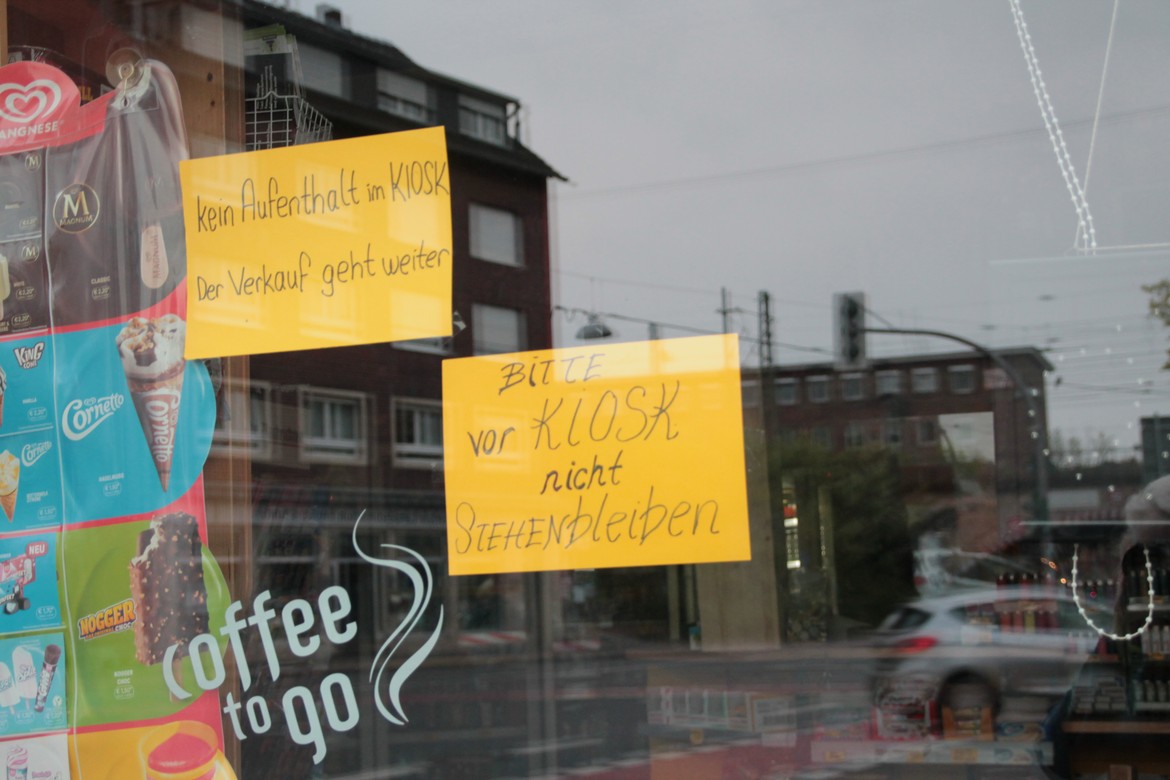 ANGNESE
M
MAGNUM
CLASSIC
kein Aufenthalt im KIOSK
Der Verkauf geht weiter
BITTE
vor KIOSK
nicht
STEHENbleiben
KING
Cornetto
Cornetto
Cornetto
NEU
NOGGER
CHOC
coffee
to go